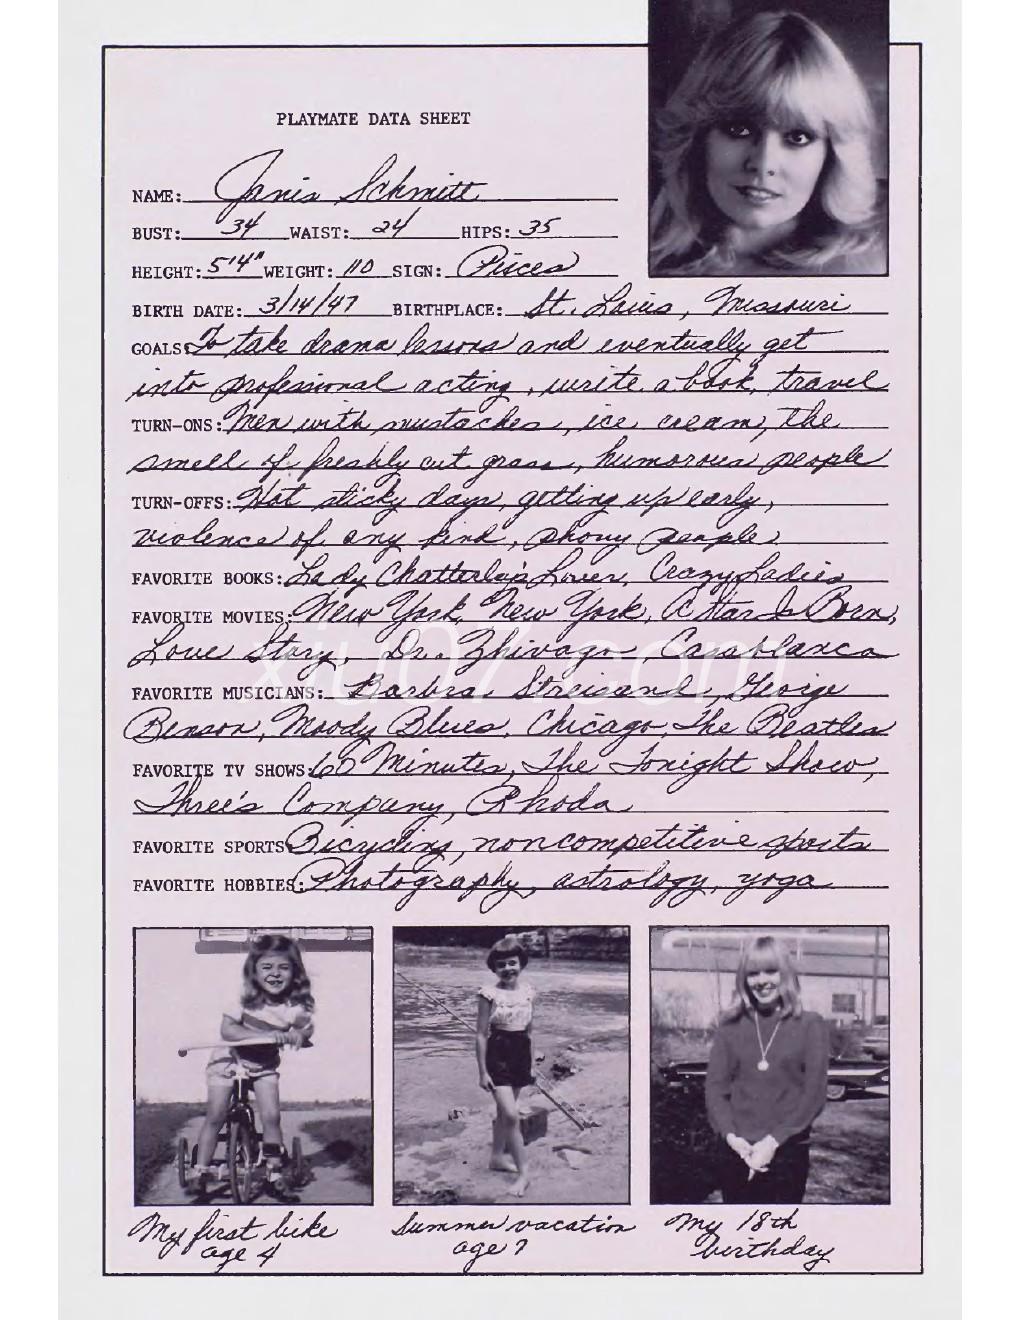 PLAYMATE DATA SHEET
NAME: Janis Schmitt
BUST: 34 WAIST: 24 HIPS: 35
HEIGHT: 5'4" WEIGHT: 110 SIGN: Pisces
BIRTH DATE: 3/14/47 BIRTHPLACE: St. Louis, Missouri
GOALS: To take drama lessons and eventually get
into professional acting, write a book, travel
TURN-ONS: Men with mustaches, ice cream, the
smell of freshly cut grass, humorous people
TURN-OFFS: Hot sticky days, getting up early,
violence of any kind, phony people
FAVORITE BOOKS: Lady Chatterley's Lover, Crazy Ladies
FAVORITE MOVIES: New York, New York, A Star Is Born,
Love Story, Dr. Zhivago, Casablanca
FAVORITE MUSICIANS: Barbra Streisand, George
Benson, Moody Blues, Chicago, The Beatles
FAVORITE TV SHOWS: 60 Minutes, The Tonight Show,
Three's Company, Rhoda
FAVORITE SPORTS: Bicycling, noncompetitive sports
FAVORITE HOBBIES: Photography, astrology, yoga
My first bike
age 4
Summer vacation
age 7
My 18th
birthday
xiu07.com